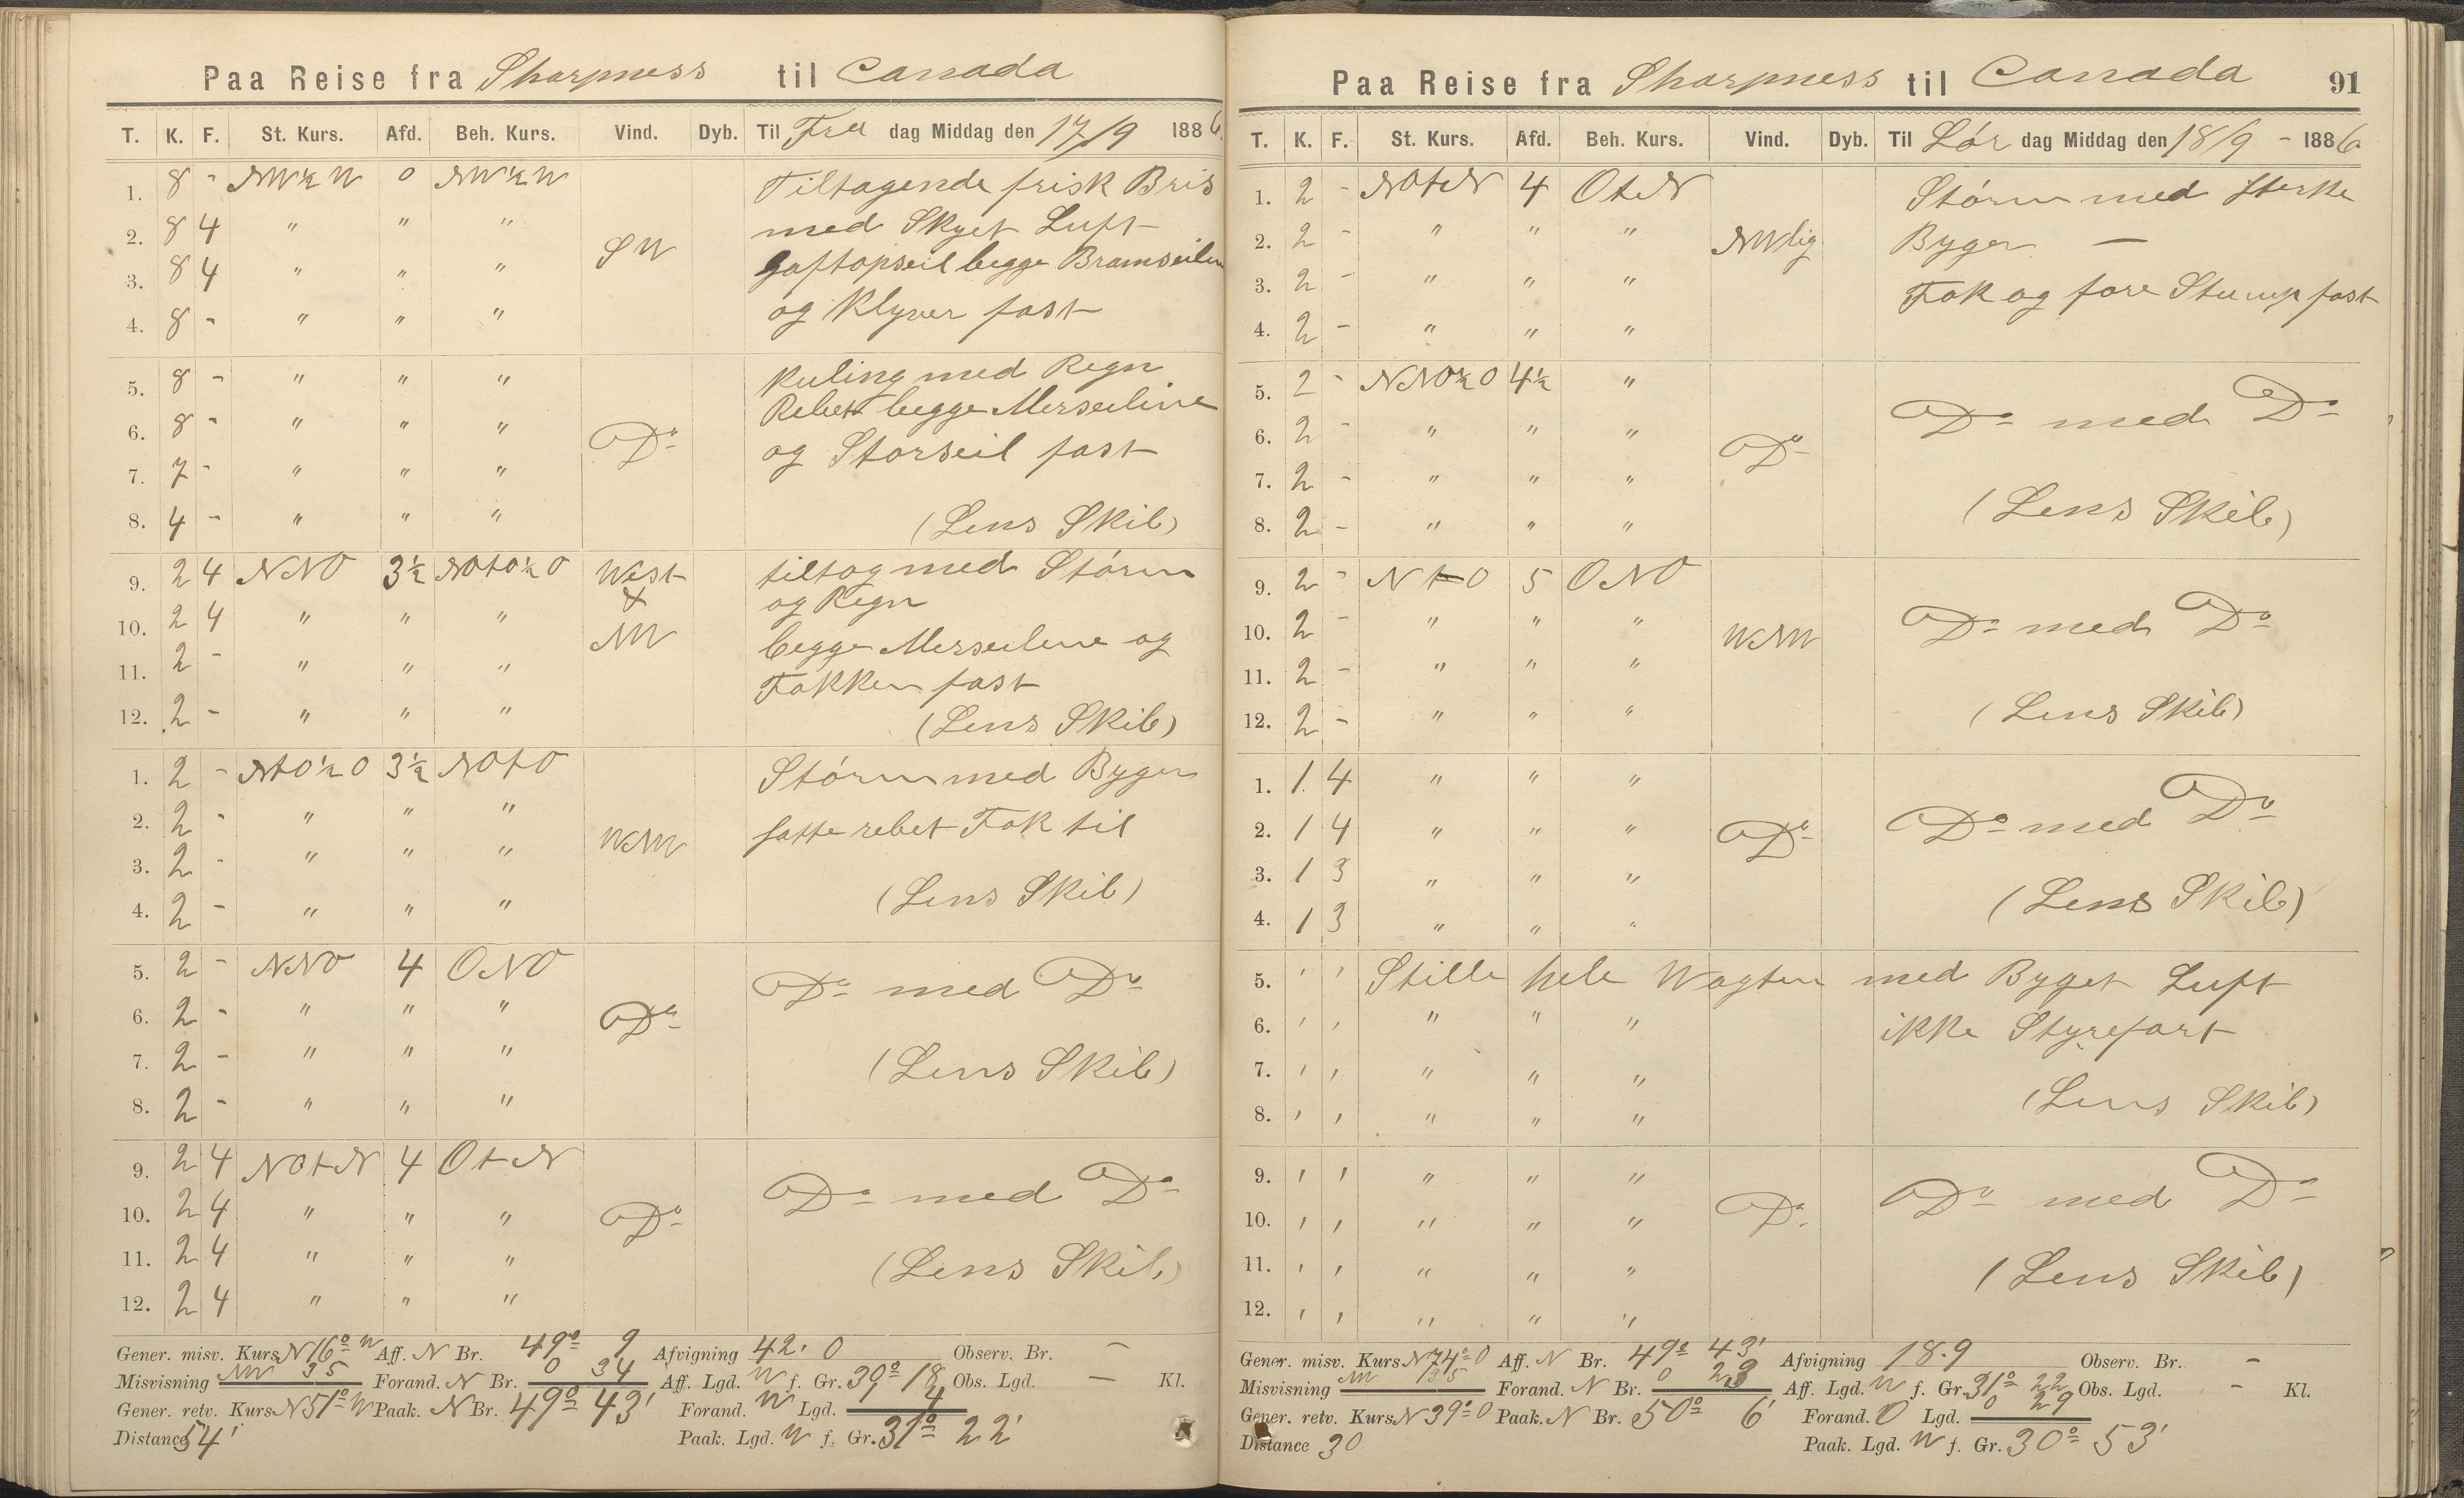 Paa Reise fra Sharpness til Canada
T. K. F. St. Kurs. Afd. Beh. Kurs. Vind. Dyb. Til Fre dag Middag den 17/9 1886.
1. 8 - NW½W 0 NW½W Tiltagende frisk Bris
2. 8 4 " " " SW med Skyet Luft
3. 8 4 " " " Gaftopseil begge Bramseilene
4. 8 - " " " og Klyver fast
5. 8 - " " " Kuling med Regn
6. 8 - " " " Do Rebet begge Merseilene
7. 7 - " " " og Storseil fast
8. 4 - " " " (Lens Skib)
9. 2 4 NNO 3½ NOtO½O West tiltog med Störm
10. 2 4 " " " & og Regn
11. 2 - " " " NW begge Merseilene og
Fokken fast
12. 2 - " " " (Lens Skib)
1. 2 - NtO½O 3½ NOtO Störm med Byger
2. 2 - " " " WNW satte rebet Fok til
3. 2 - " " "
4. 2 - " " " (Lens Skib)
5. 2 - NNO 4 ONO Do med Do
6. 2 - " " " Do
7. 2 - " " " (Lens Skib)
8. 2 - " " "
9. 2 4 NOtN 4 OtN Do med Do
10. 2 4 " " " Do
11. 2 4 " " " (Lens Skib)
12. 2 4 " " "
Gener. misv. Kurs N 16º W Aff. N Br. 49º 9 Afvigning 42.0 Observ. Br. —
Misvisning NW 35 Forand. N Br. 0 34 Aff. Lgd. W f. Gr. 30º 18 Obs. Lgd. — Kl.
Gener. retv. Kurs N 51º W Paak. N Br. 49º 43' Forand. W Lgd. 1 4
Distance 54' Paak. Lgd. W f. Gr. 31º 22'
Paa Reise fra Sharpness til Canada 91
T. K. F. St. Kurs. Afd. Beh. Kurs. Vind. Dyb. Til Lör dag Middag den 18/9 - 1886
1. 2 - NOtN 4 OtN Störm med sterke
2. 2 - " " " NWlig Byger —
3. 2 - " " " Fok og fore Stump fast
4. 2 - " " "
5. 2 - NNO½O 4½ " Do med Do
6. 2 - " " " Do
7. 2 - " " " (Lens Skib)
8. 2 - " " "
9. 2 - NtO 5 ONO
10. 2 - " " " WNW Do med Do
11. 2 - " " "
12. 2 - " " " (Lens Skib)
1. 1 4 " " "
2. 1 4 " " " Do Do med Do
3. 1 3 " " "
4. 1 3 " " " (Lens Skib)
5. ' ' Stille hele Wagten med Byget Luft
6. ' ' " " " ikke Styrefart
7. ' ' " " "
8. ' ' " " " (Lens Skib)
9. ' ' " " " Do med Do
10. ' ' " " " Do
11. ' ' " " " (Lens Skib)
12. ' ' " " "
Gener. misv. Kurs N 74º O Aff. N Br. 49º 43' Afvigning 18.9 Observ. Br. —
Misvisning NW 35 Forand. N Br. 0 23 Aff. Lgd. W f. Gr. 31º 22 Obs. Lgd. — Kl.
Gener. retv. Kurs N 39º O Paak. N Br. 50º 6' Forand. O Lgd. 0 29
Distance 30 Paak. Lgd. W f. Gr. 30º 53'